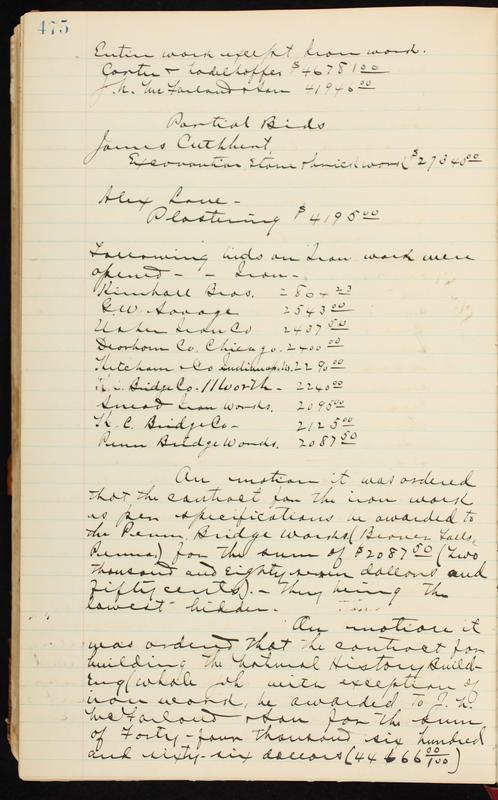 475
Entire work except Iron word.
$46781 00
J. H. McFarland & Son 41946 00
Partial Bids
James Cuthbert,
Excavation Stone & brick work $27345 00
Alex Lane -
Plastering $4195 00
Following bids on Iron work were
opened - - Iron -
Kimball Bros. 2864 23
G. W. Savage 2543 00
Iron Co 2437 50
Dearborn Co. Chicago. 2400 00
Ketcham & Co Indianap. 2290 00
Bridge Co. 2240 00
Snead Iron Works. 2095 00
K. C. Bridge Co - 2125 00
Penn Bridge Works. 2087 50
On motion it was ordered
that the contract for the iron work
as per specifications be awarded to
the Penn Bridge Works (Beaver Falls,
Penna) for the sum of $2087 50 (Two
thousand and Eighty-seven dollars and
Fifty cents). - They being the
lowest bidder.
On motion it
was ordered that the contract for
building the Natural History Build-
Eng (whole job with exception of
iron work, be awarded to J. H.
McFarland & Son for the sum
of Forty-four thousand six hundred
and sixty-six dollars (44666 00/100)